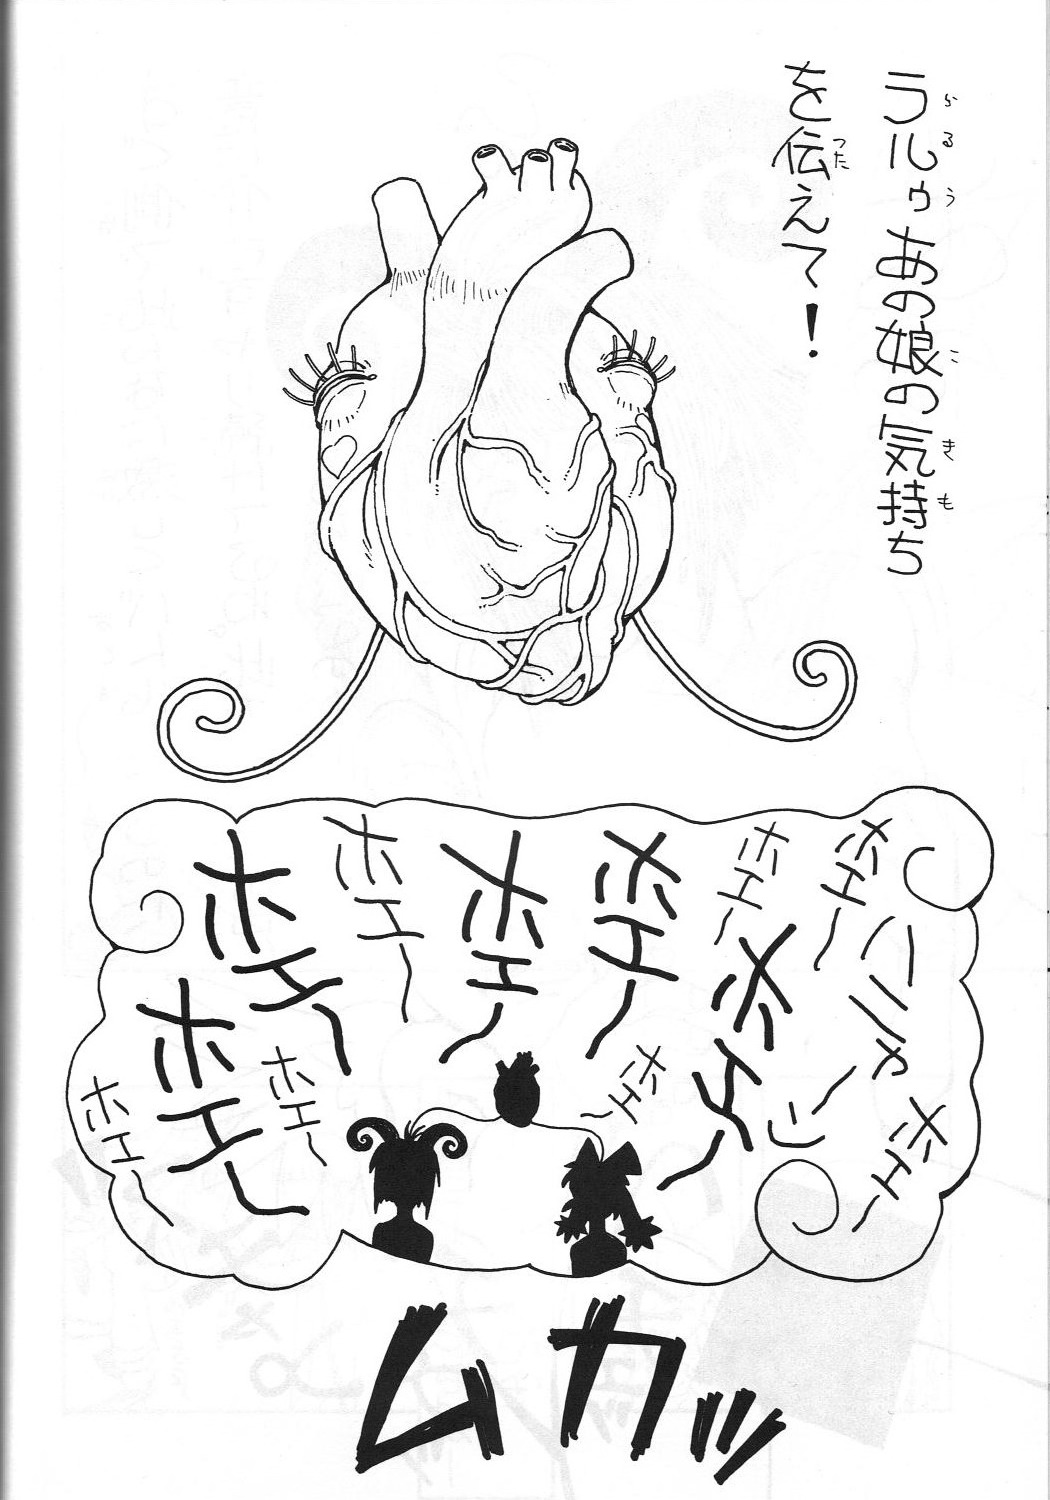 ラルゥあの娘の気持ち
らるう こ きも
を伝えて!
つた
ホエ~
ハニャーン
ホエ~
ホエ~
ホエ~
ホエ~
ホエ~
ホエ~
ホエ~
ホエ~
ホエ~
ホエ~
ホエ~
ムカッ